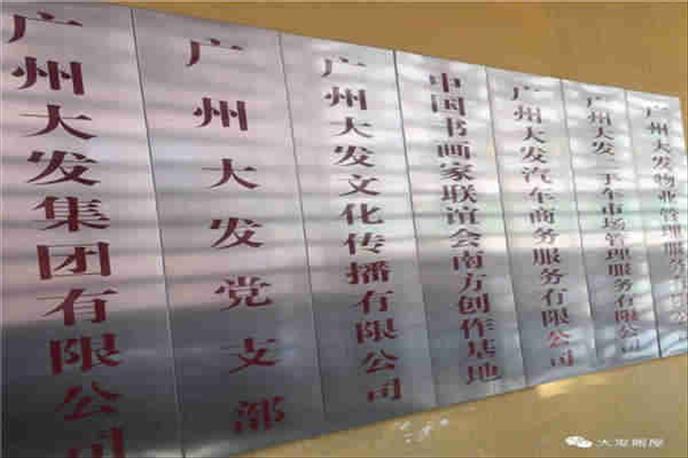 广州大发集团有限公司
广州大发党支部
广州大发文化传播有限公司
中国书画家联谊会南方创作基地
广州大发汽车商务服务有限公司
广州大发二手车市场管理服务有限公司
广州大发物业管理服务有限公
大发